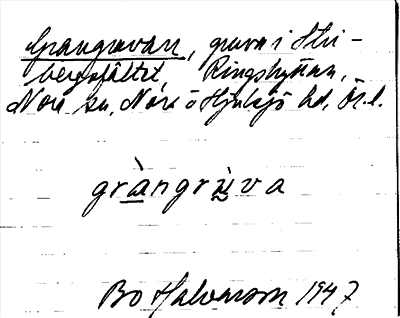 Grangruvan, gruva i Stri-
bergsfältet, Ringshyttan,
Nora sn, Nora o Hjulsjö hd, Ör. l.
gràngrùva
Bo Halvarson 1947